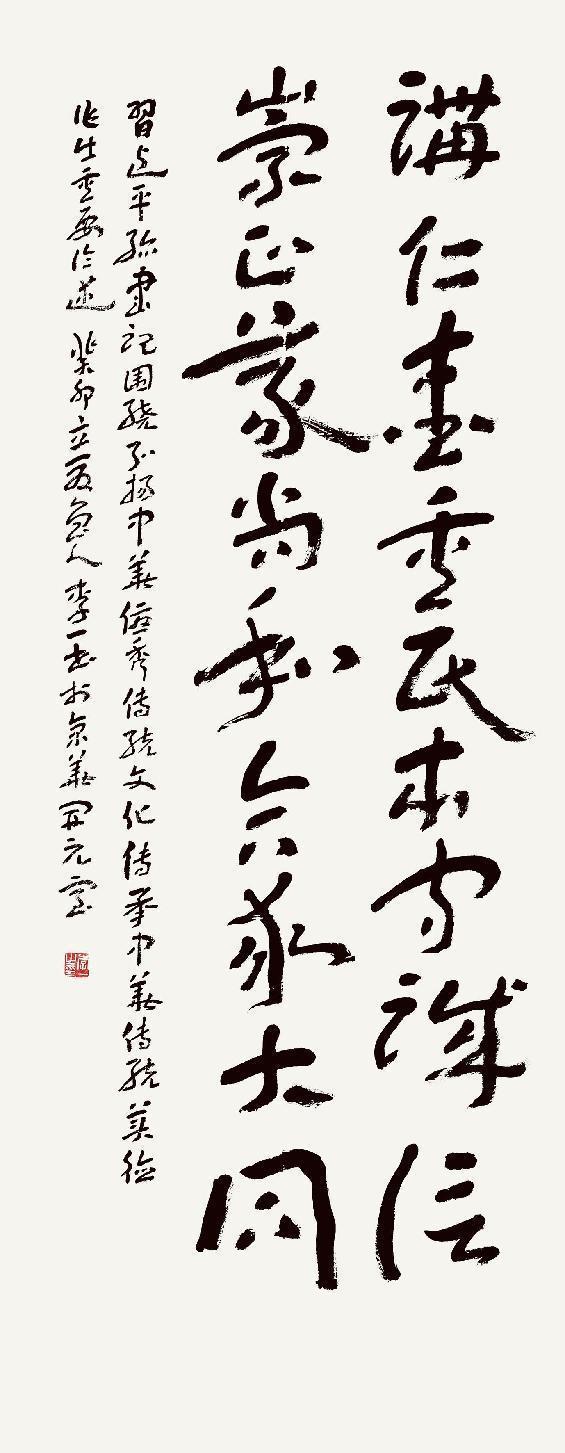 講仁愛重民本守誠信
崇正義尚和合求大同
習近平総書記围繞弘揚中華優秀傳統文化傳承中華傳統美德
作出重要论述 癸卯立夏 魚人李一书於京華開元室